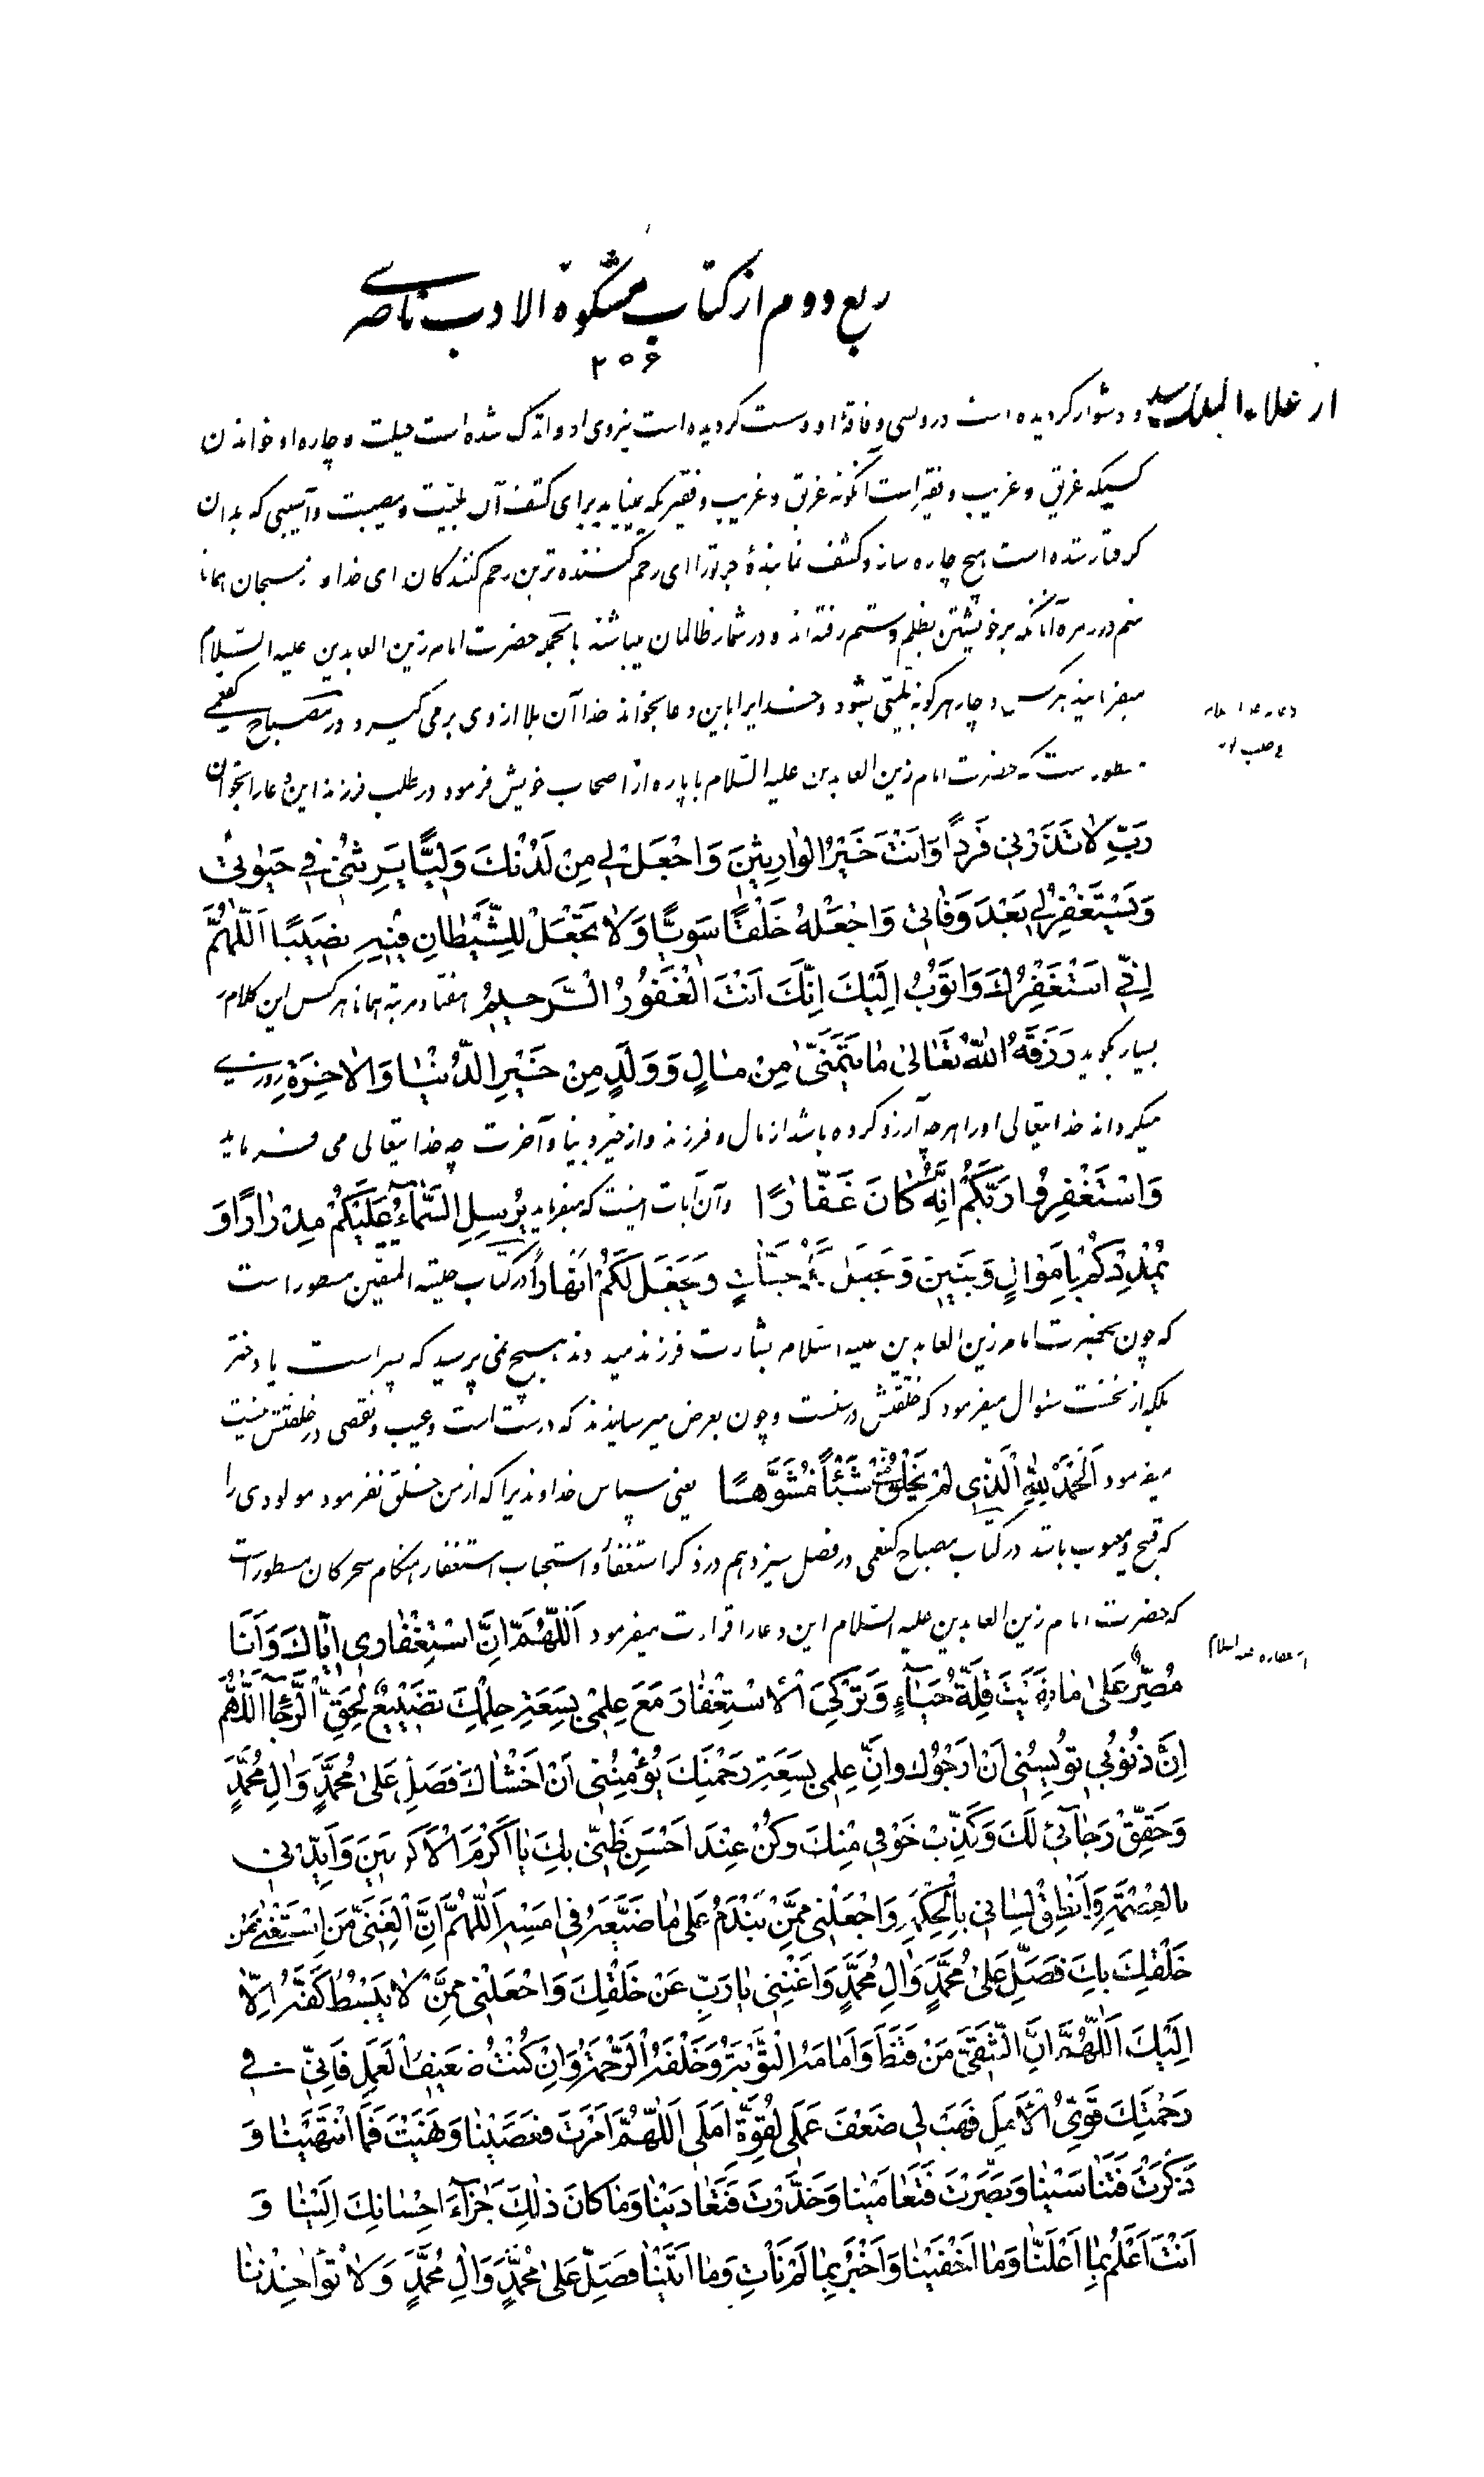 ربع دوم از کتاب مشکوة الادب ناصری
۲۵۶
و دشوار کردیده است درویسی و فاقهٔ او و سست کردیده است نیروی او و اندک شده است حیلت و چاره او خواندن
کسیکه غریق و غریب و فقیر است آنکونه غریق و غریب و فقیر که نمیابد برای کشف آن بلیّت و مصیبت و آسیبی که بدان
کرفتار شده است هیچ چاره ساز و کشف نمایندهٔ جز تو را ای رحم کننده ترین رحم کنندکان ای خداوند سبحان همانا
منم در زمره آنانکه بر خویشتن بظلم و ستم رفته اند و در شمار ظالمان میباشند بالجمله حضرت امام زین العابدین علیه السّلام
میفرمایند هرکس دچار هرکونه بلیّتی بشود و خدایرا باین دعا بخواند خدا آن بلا از وی برمی کیرد و در مصباح کفعمی
مسطور ست که حضرت امام زین العابدین علیه السّلام با پاره از اصحاب خویش فرمود در طلب فرزند این دعا را بخوان
رَبِّ لَا تَذَرْنِی فَرْدًا وَاَنْتَ خَیْرُ الْوارِثِینَ وَاجْعَلْ لِی مِنْ لَدُنْكَ وَلِیًّا یَرِثُنِی فِی حَیٰوتِی
وَیَسْتَغْفِرُ لِی بَعْدَ وَفَاتِی وَاجْعَلْهُ خَلْقًا سَوِیًّا وَلَا تَجْعَلْ لِلشَّیْطَانِ فِیهِ نَصِیبًا اَللّٰهُمَّ
اِنِّی اَسْتَغْفِرُكَ وَاَتُوبُ اِلَیْكَ اِنَّكَ اَنْتَ الْغَفُورُ الرَّحِیمُ هفتاد مرتبه همانا هرکس این کلام
بسیار بکوید رَزَقَهُ اللّٰهُ تَعَالٰی مَا یَتَمَنّٰی مِنْ مَالٍ وَوَلَدٍ مِنْ خَیْرِ الدُّنْیَا وَالْاٰخِرَةِ روزی
میکرداند خدایتعالی او را هر چه آرزو کرده باشد از مال و فرزند و از خیر دنیا و آخرت چه خدایتعالی می فرماید
وَاسْتَغْفِرُوا رَبَّكُمْ اِنَّهُ كَانَ غَفَّارًا و آن آیات اینست که میفرماید یُرْسِلِ السَّمَاءَ عَلَیْكُمْ مِدْرَارًا وَ
یُمْدِدْكُمْ بِاَمْوَالٍ وَبَنِینَ وَیَجْعَلْ لَكُمْ جَنَّاتٍ وَیَجْعَلْ لَكُمْ اَنْهَارًا در کتاب حلیة المتقین مسطور است
که چون بحضرت امام زین العابدین علیه السّلام بشارت فرزند میدادند هیچ نمی پرسید که پسر است یا دختر
بلکه از نخست سئوال میفرمود که خلقتش درستست و چون بعرض میرسانیدند که درست است و عیب و نقصی در خلقتش نیست
میفرمود اَلْحَمْدُ لِلّٰهِ الَّذِی لَمْ یَخْلُقْ مِنِّی شَیْئًا مُشَوَّهًا یعنی سپاس خداوندیرا که از من خلق نفرمود مولودی را
که قبیح و معیوب باشد در کتاب مصباح کفعمی در فصل سیزدهم در ذکر استغفار و استحباب استغفار هنکام سحرکان مسطور است
که حضرت امام زین العابدین علیه السّلام این دعا را قرائت میفرمود اَللّٰهُمَّ اِنَّ اسْتِغْفَارِی اِیَّاكَ وَاَنَا
مُصِرٌّ عَلٰی مَا نَهَیْتَ قِلَّةُ حَیَاءٍ وَتَرْكِیَ الْاِسْتِغْفَارَ مَعَ عِلْمِی بِسَعَةِ حِلْمِكَ تَضْیِیعٌ لِحَقِّ الرَّجَاءِ اَللّٰهُمَّ
اِنَّ ذُنُوبِی تُؤْیِسُنِی اَنْ اَرْجُوَكَ وَاِنَّ عِلْمِی بِسَعَةِ رَحْمَتِكَ یُؤْمِنُنِی اَنْ اَخْشَاكَ فَصَلِّ عَلٰی مُحَمَّدٍ وَاٰلِ مُحَمَّدٍ
وَحَقِّقْ رَجَائِی لَكَ وَكَذِّبْ خَوْفِی مِنْكَ وَكُنْ عِنْدَ اَحْسَنِ ظَنِّی بِكَ یَا اَكْرَمَ الْاَكْرَمِینَ وَاَیِّدْنِی
بِالْعِصْمَةِ وَاَنْطِقْ لِسَانِی بِالْحِكْمَةِ وَاجْعَلْنِی مِمَّنْ یَنْدَمُ عَلٰی مَا ضَیَّعَهُ فِی اَمْسِهِ اَللّٰهُمَّ اِنَّ الْغَنِیَّ مَنِ اسْتَغْنٰی عَنْ
خَلْقِكَ بِكَ فَصَلِّ عَلٰی مُحَمَّدٍ وَاٰلِ مُحَمَّدٍ وَاَغْنِنِی یَا رَبِّ عَنْ خَلْقِكَ وَاجْعَلْنِی مِمَّنْ لَا یَبْسُطُ كَفَّهُ اِلَّا
اِلَیْكَ اَللّٰهُمَّ اِنَّ الشَّقِیَّ مَنْ قَنَطَ وَاَمَامَهُ التَّوْبَةُ وَخَلْفَهُ الرَّحْمَةُ وَاِنْ كُنْتُ ضَعِیفَ الْعَمَلِ فَاِنِّی فِی
رَحْمَتِكَ قَوِیُّ الْاَمَلِ فَهَبْ لِی ضَعْفَ عَمَلِی لِقُوَّةِ اَمَلِی اَللّٰهُمَّ اَمَرْتَ فَعَصَیْنَا وَنَهَیْتَ فَمَا انْتَهَیْنَا وَ
ذَكَّرْتَ فَتَنَاسَیْنَا وَبَصَّرْتَ فَتَعَامَیْنَا وَحَذَّرْتَ فَتَعَادَیْنَا وَمَا كَانَ ذٰلِكَ جَزَاءَ اِحْسَانِكَ اِلَیْنَا وَ
اَنْتَ اَعْلَمُ بِمَا اَعْلَنَّا وَمَا اَخْفَیْنَا وَاَخْبَرُ بِمَا لَمْ نَأْتِ وَمَا اَتَیْنَا فَصَلِّ عَلٰی مُحَمَّدٍ وَاٰلِ مُحَمَّدٍ وَلَا تُؤَاخِذْنَا